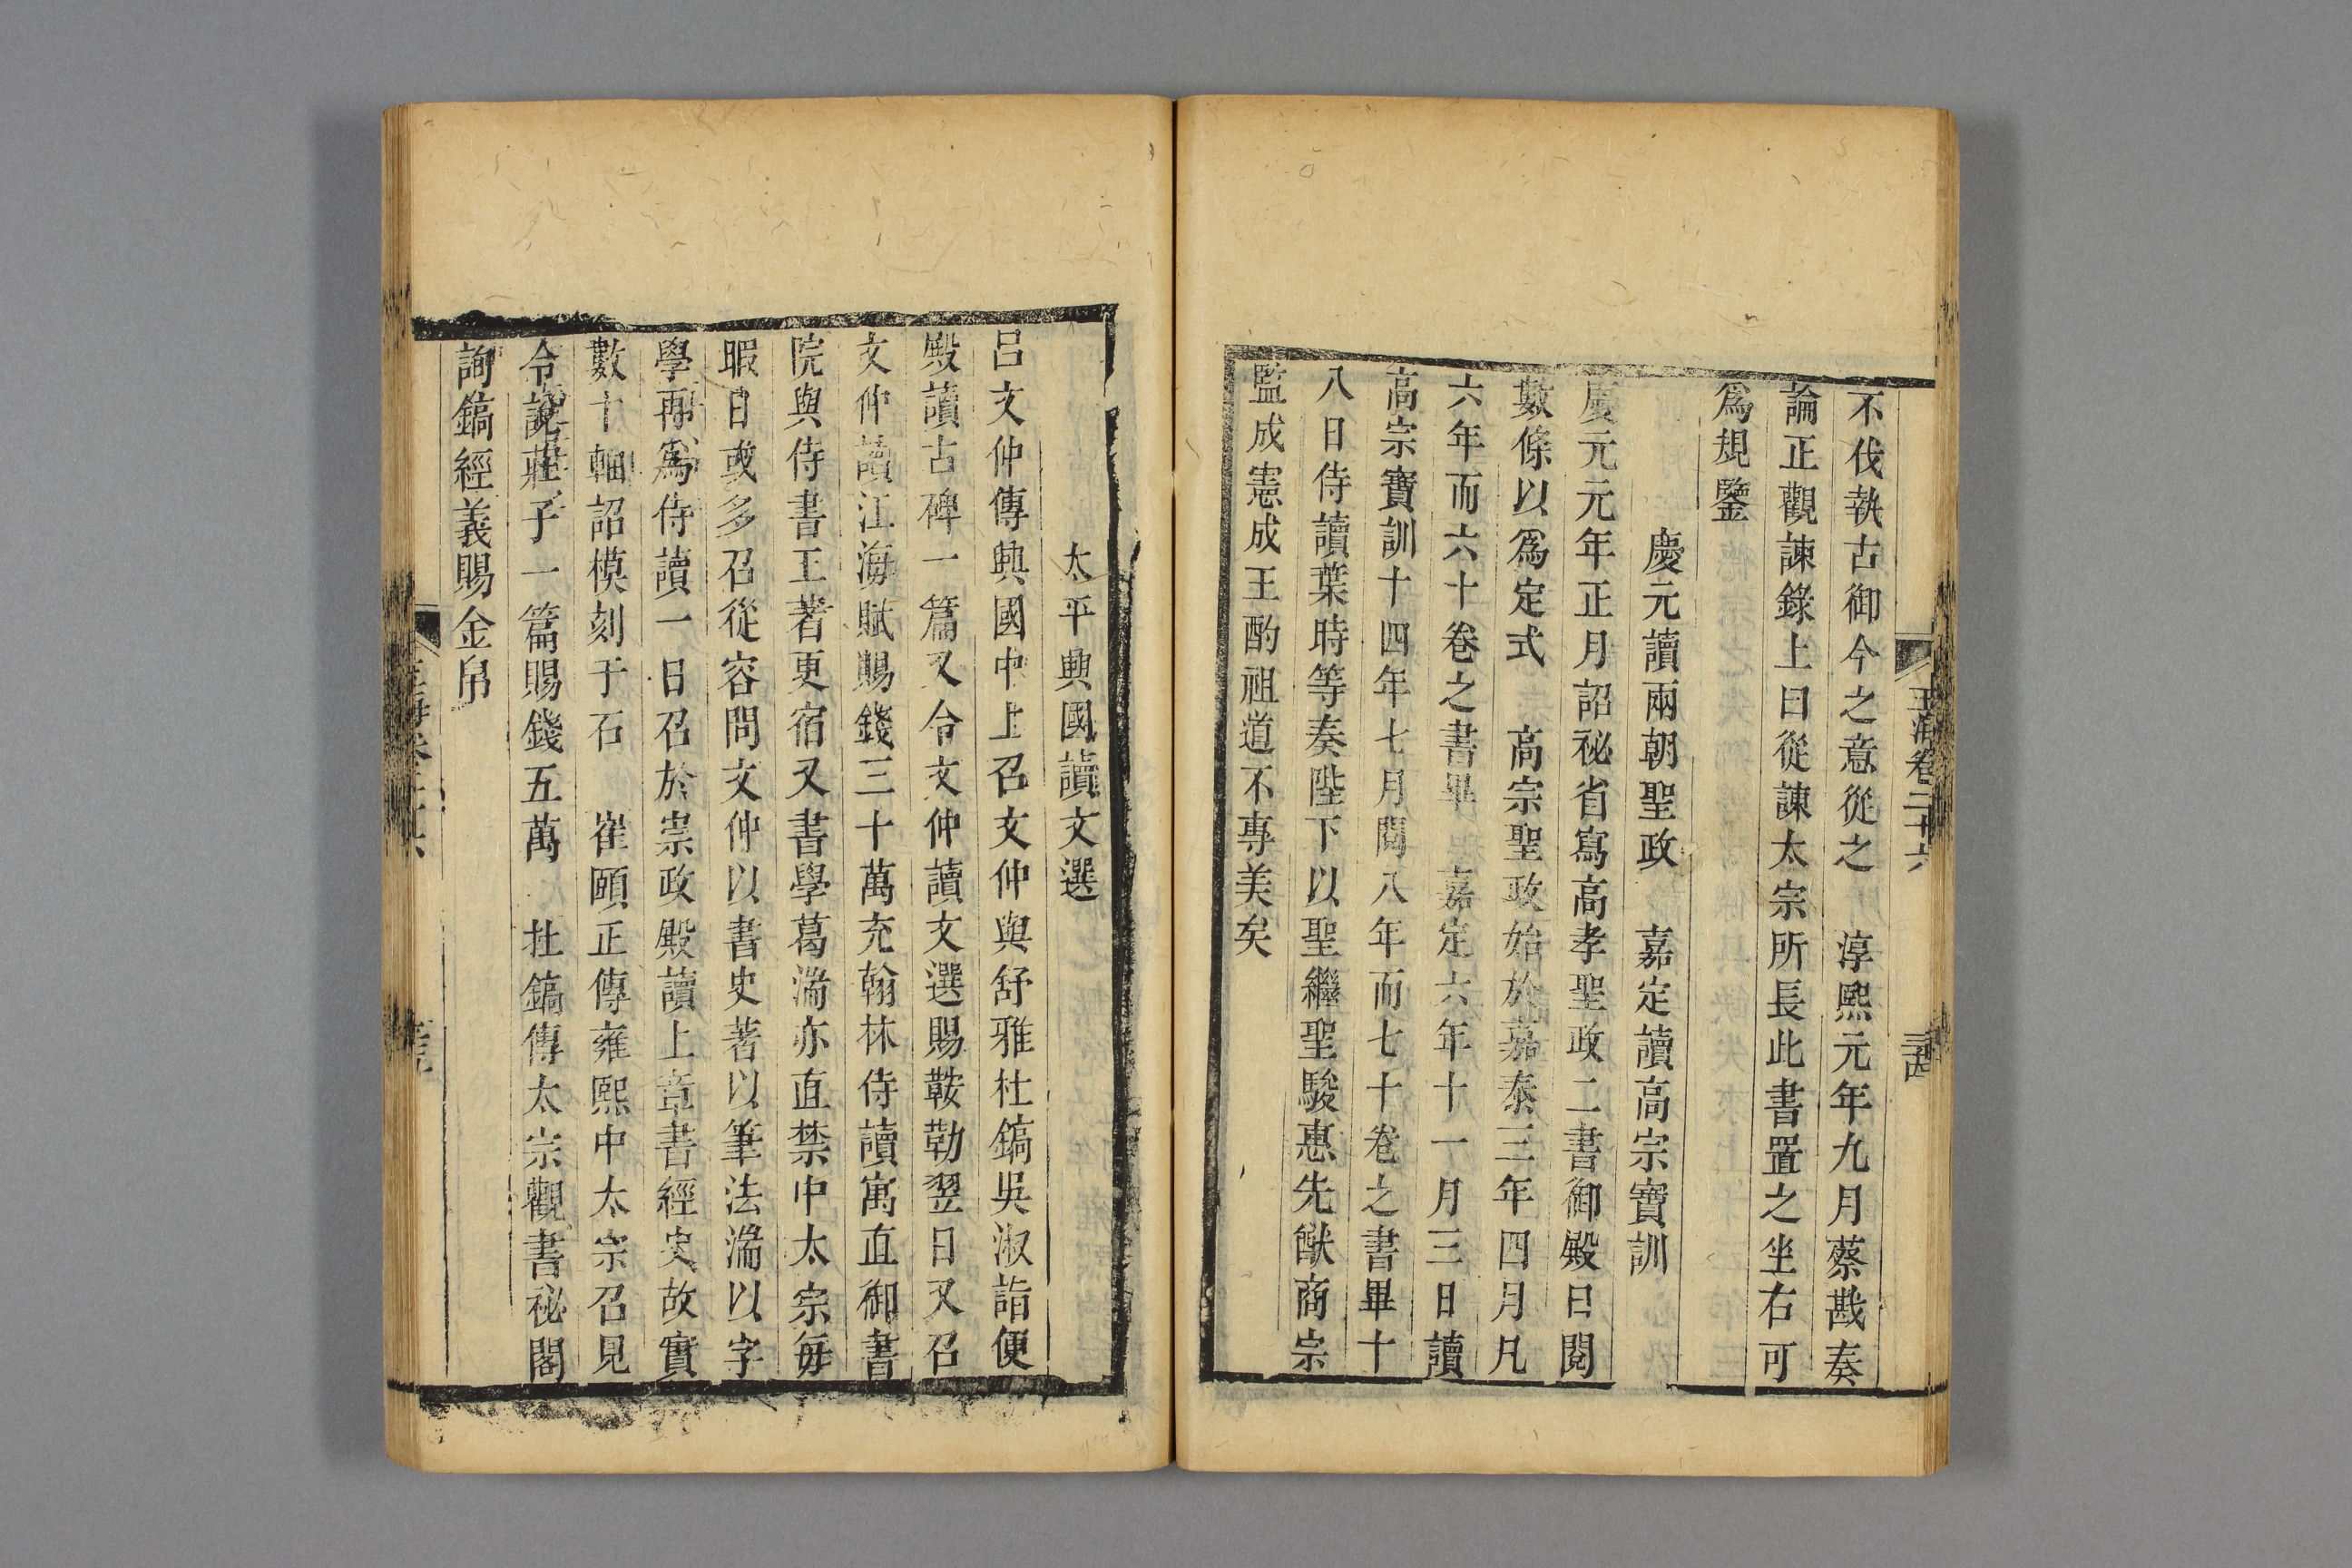 玉海卷二十六
不伐執古御今之意從之　淳熙元年九月蔡戡奏
論正觀諫錄上曰從諫太宗所長此書置之坐右可
爲規鑒
慶元讀兩朝聖政　嘉定讀高宗寶訓
慶元元年正月詔祕省寫高孝聖政二書御殿日閱
數條以爲定式　高宗聖政始於嘉泰三年四月凡
六年而六十卷之書畢　嘉定六年十一月三日讀
高宗寶訓十四年七月閱八年而七十卷之書畢十
八日侍讀葉時等奏陛下以聖繼聖駿惠先猷商宗
監成憲成王酌祖道不專美矣
太平興國讀文選
呂文仲傳興國中上召文仲與舒雅杜鎬吳淑詣便
殿讀古碑一篇又令文仲讀文選賜鞍勒翌日又召
文仲讀江海賦賜錢三十萬充翰林侍讀寓直御書
院與侍書王著更宿又書學葛湍亦直禁中太宗每
暇日或多召從容問文仲以書史著以筆法湍以字
學再爲侍讀一日召於崇政殿讀上章書經史故實
數十軸詔模刻于石　崔頤正傳雍熙中太宗召見
令說莊子一篇賜錢五萬　杜鎬傳太宗觀書祕閣
詢鎬經義賜金帛